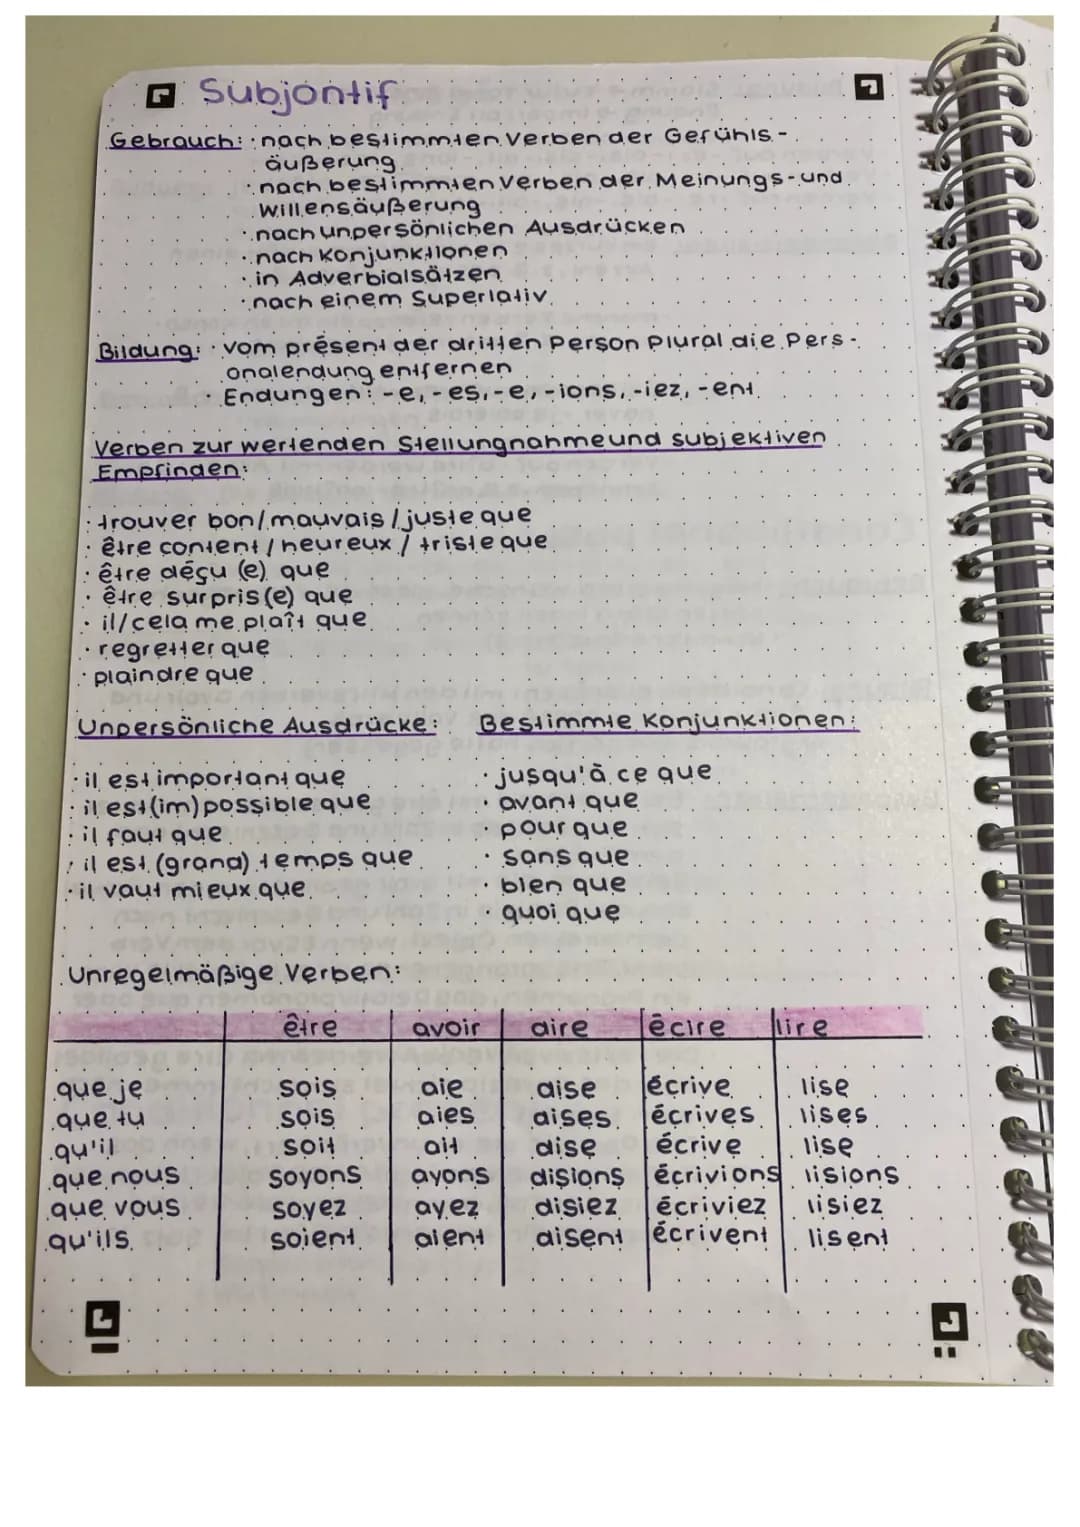 Subjontif
Gebrauch: · nach bestimmten Verben der Gefühls-
äußerung
· nach bestimmten Verben der Meinungs- und
Willensäußerung
· nach unpersönlichen Ausdrücken
· nach Konjunktionen
· in Adverbialsätzen
· nach einem Superlativ
Bildung: · vom présent der dritten Person Plural die Pers-
onalendung entfernen
· Endungen: -e, -es, -e, -ions, -iez, -ent
Verben zur wertenden Stellungnahme und subjektiven
Empfinden:
· trouver bon / mauvais / juste que
· être content / heureux / triste que
· être déçu (e) que
· être surpris(e) que
· il/cela me plaît que
· regretter que
· plaindre que
Unpersönliche Ausdrücke:
· il est important que
· il est (im)possible que
· il faut que
· il est (grand) temps que
· il vaut mieux que
Bestimmte Konjunktionen:
· jusqu'à ce que
· avant que
· pour que
· sans que
· bien que
· quoi que
Unregelmäßige Verben:
être avoir dire écire lire
que je sois aie dise écrive lise
que tu sois aies dises écrives lises
qu'il soit ait dise écrive lise
que nous soyons ayons disions écrivions lisions
que vous soyez ayez disiez écriviez lisiez
qu'ils soient aient disent écrivent lisent